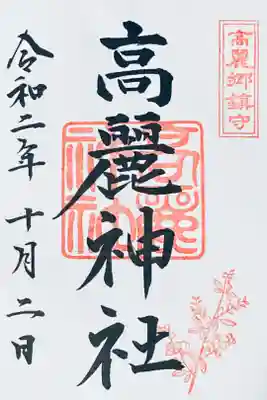 高麗郷鎮守
高麗神社
令和二年 十月 二日
高麗神社